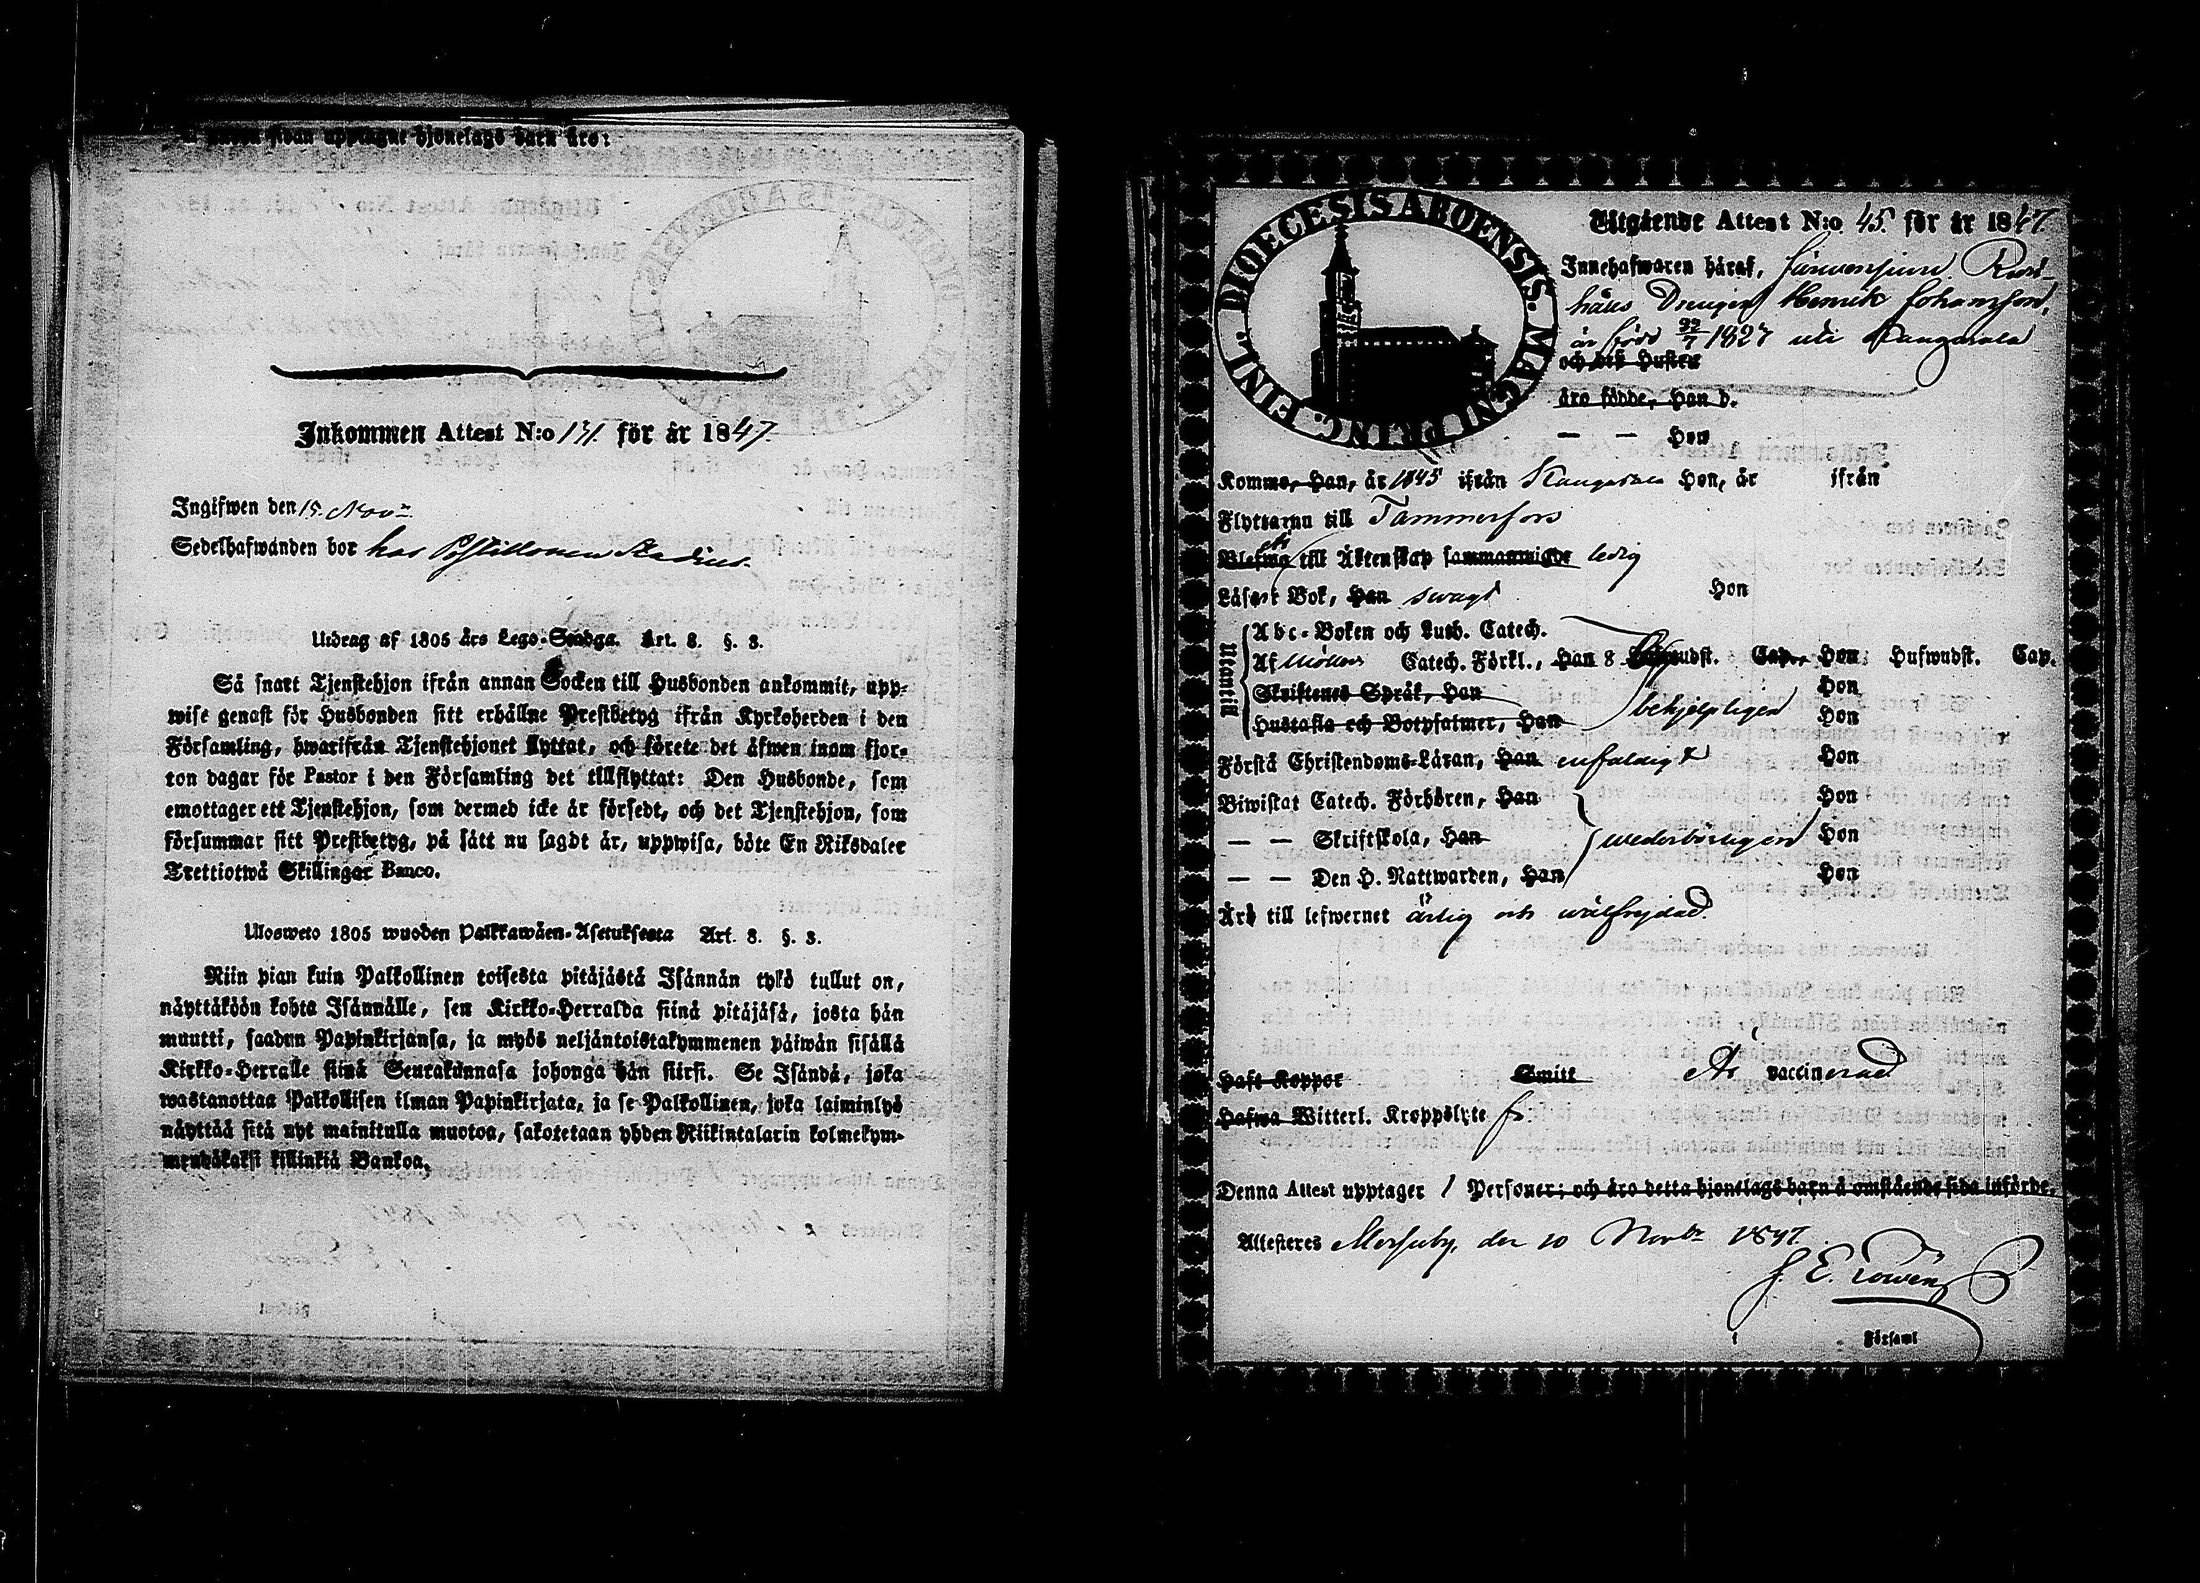 sidan upptagne hjonelags barn äro:
Inkommen Attest N:o 131. för år 1847.
Ingifwen den 15. Nov:r
Sedelhafwanden bor hos Postillonen Stadius.
Utdrag af 1805 års Lego-Stadga. Art. 8. §. 3.
Så snart Tjenstehjon ifrån annan Socken till Husbonden ankommit, upp-
wise genast för Husbonden sitt erhållne Prestbetyg ifrån Kyrkoherden i den
Församling, hwarifrån Tjenstehjonet flyttat, och förete det äfwen inom fjor-
ton dagar för Pastor i den Församling det tillflyttat: Den Husbonde, som
emottager ett Tjenstehjon, som dermed icke är försedt, och det Tjenstehjon, som
försummar sitt Prestbetyg, på sätt nu sagdt är, uppwisa, böte En Riksdaler
Trettiotwå Skillingar Banco.
Ulosweto 1805 wuoden Palkkawäen-Asetuksesta Art. 8. §. 3.
Niin pian kuin Palkollinen toisesta pitäjästä Isännän tykö tullut on,
näyttäköön kohta Isännälle, sen Kirkko-Herralda siinä pitäjäsä, josta hän
muutti, saadun Papinkirjansa, ja myös neljäntoistakymmenen päiwän sisällä
Kirkko-Herralle siinä Seurakunnasa johonga hän siirsi. Se Isändä, joka
wastanottaa Palkollisen ilman Papinkirjata, ja se Palkollinen, joka laiminlyö
näyttää sitä nyt mainitulla muotoa, sakotetaan yhden Riikintalarin kolmekym-
mendäkaksi killinkiä Bankoa.
DIOECESIS ABOENSIS. MAGNI PRINC. FINL.
Utgående Attest N:o 45. för år 1847.
Innehafwaren häraf,
Drengen Henrik Johansson,
är född 22/7 1827 uti Kangasala
och dess Hustru
äro födde, Han d.
— — Hon
Komme, Han, år 1845 ifrån Kangasala Hon, år ifrån
Flyttar nu till Tammerfors
till Äktenskap sammanwigde ledig
Läser i Bok, Han swagt Hon
Utantill
Abc-Boken och Luth. Catech.
Af Möllers Catech. Förkl., Han 8 Hufwudst. Cap., Hon Hufwudst. Cap.
Skriftenes Språk, Han Hon
Hustafla och Botpsalmer, Han behjelpligen Hon
Förstå Christendoms-Läran, Han enfaldigt Hon
Biwistat Catech. Förhören, Han Hon
— — Skriftskola, Han wederbörligen Hon
— — Den H. Nattwarden, Han Hon
Äro till lefwernet ärlig och wälfrejdad.
Haft Koppor Smitt Är vaccinerad
Hafwa Witterl. Kroppslyte
Denna Attest upptager 1 Personer; och äro detta hjonelags barn å omstående sida införde.
Attesteres Messuby, den 10 Nov:br 1847.
J. E. Rowén
i Församl